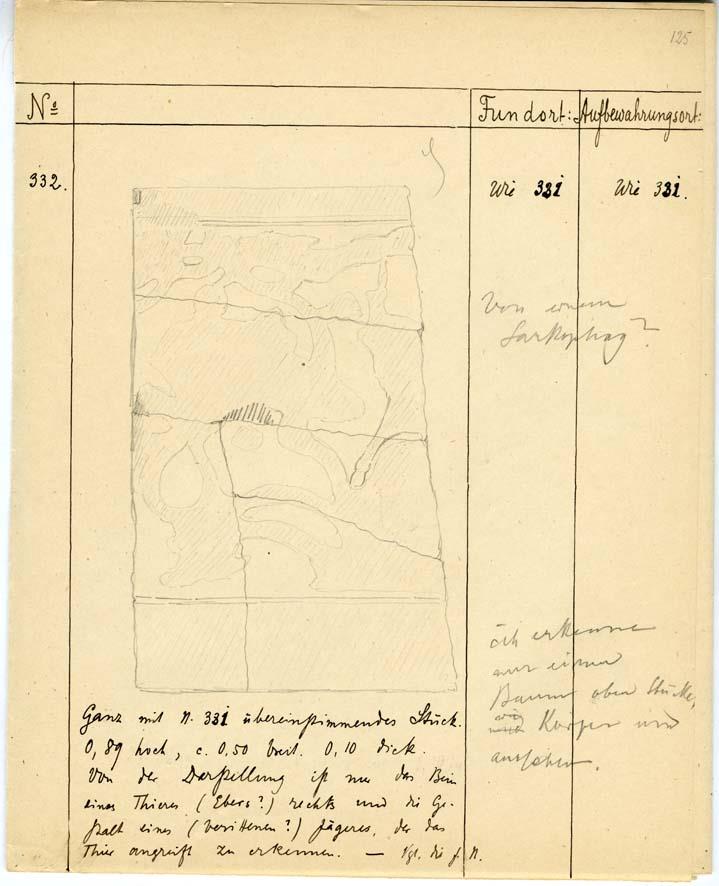 125
No Fundort: Aufbewahrungsort:
332. Wie 331 Wie 331.
Von einem
Sarkophag?
ich erkenne
nur einen
Baum oben
Körper und
aussehen.
Ganz mit N. 331 übereinstimmendes Stück.
0,89 hoch, c. 0,50 breit. 0,10 dick.
Von der Darstellung ist nur das Bein
eines Thieres (Ebers?) rechts und die Ge-
stalt eines (berittenen?) Jägeres, der das
Thier angreift zu erkennen. — Vgl. die f. N.